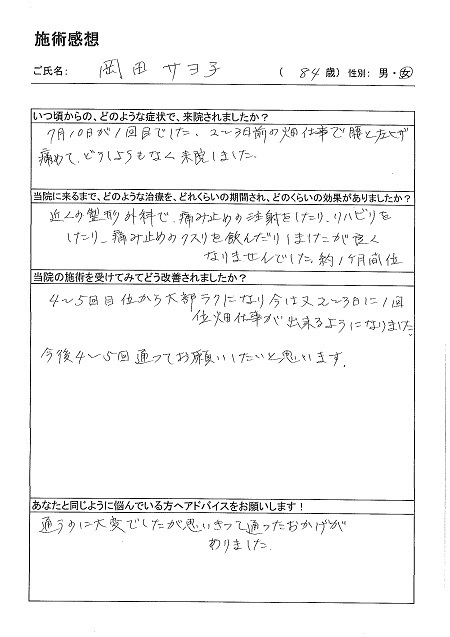 施術感想
ご氏名: 岡田サヨ子 (84歳) 性別: 男・女
いつ頃からの、どのような症状で、来院されましたか?
7月10日が1回目でした、2〜3日前の畑仕事で腰と左ヒザ
痛めて、どうしようもなく来院しました。
当院に来るまで、どのような治療を、どれくらいの期間され、どのくらいの効果がありましたか?
近くの整形外科で、痛み止めの注射をしたり、リハビリを
したり、痛み止めのクスリを飲んだりしましたが良く
なりませんでした、約1ケ月間位
当院の施術を受けてみてどう改善されましたか?
4〜5回目位から大部ラクになり今は又2〜3日に1回
位畑仕事が出来るようになりました。
今後4〜5回通ってお願いしたいと思います.
あなたと同じように悩んでいる方へアドバイスをお願いします!
通うのに大変でしたが思いきって通ったおかげが
ありました.